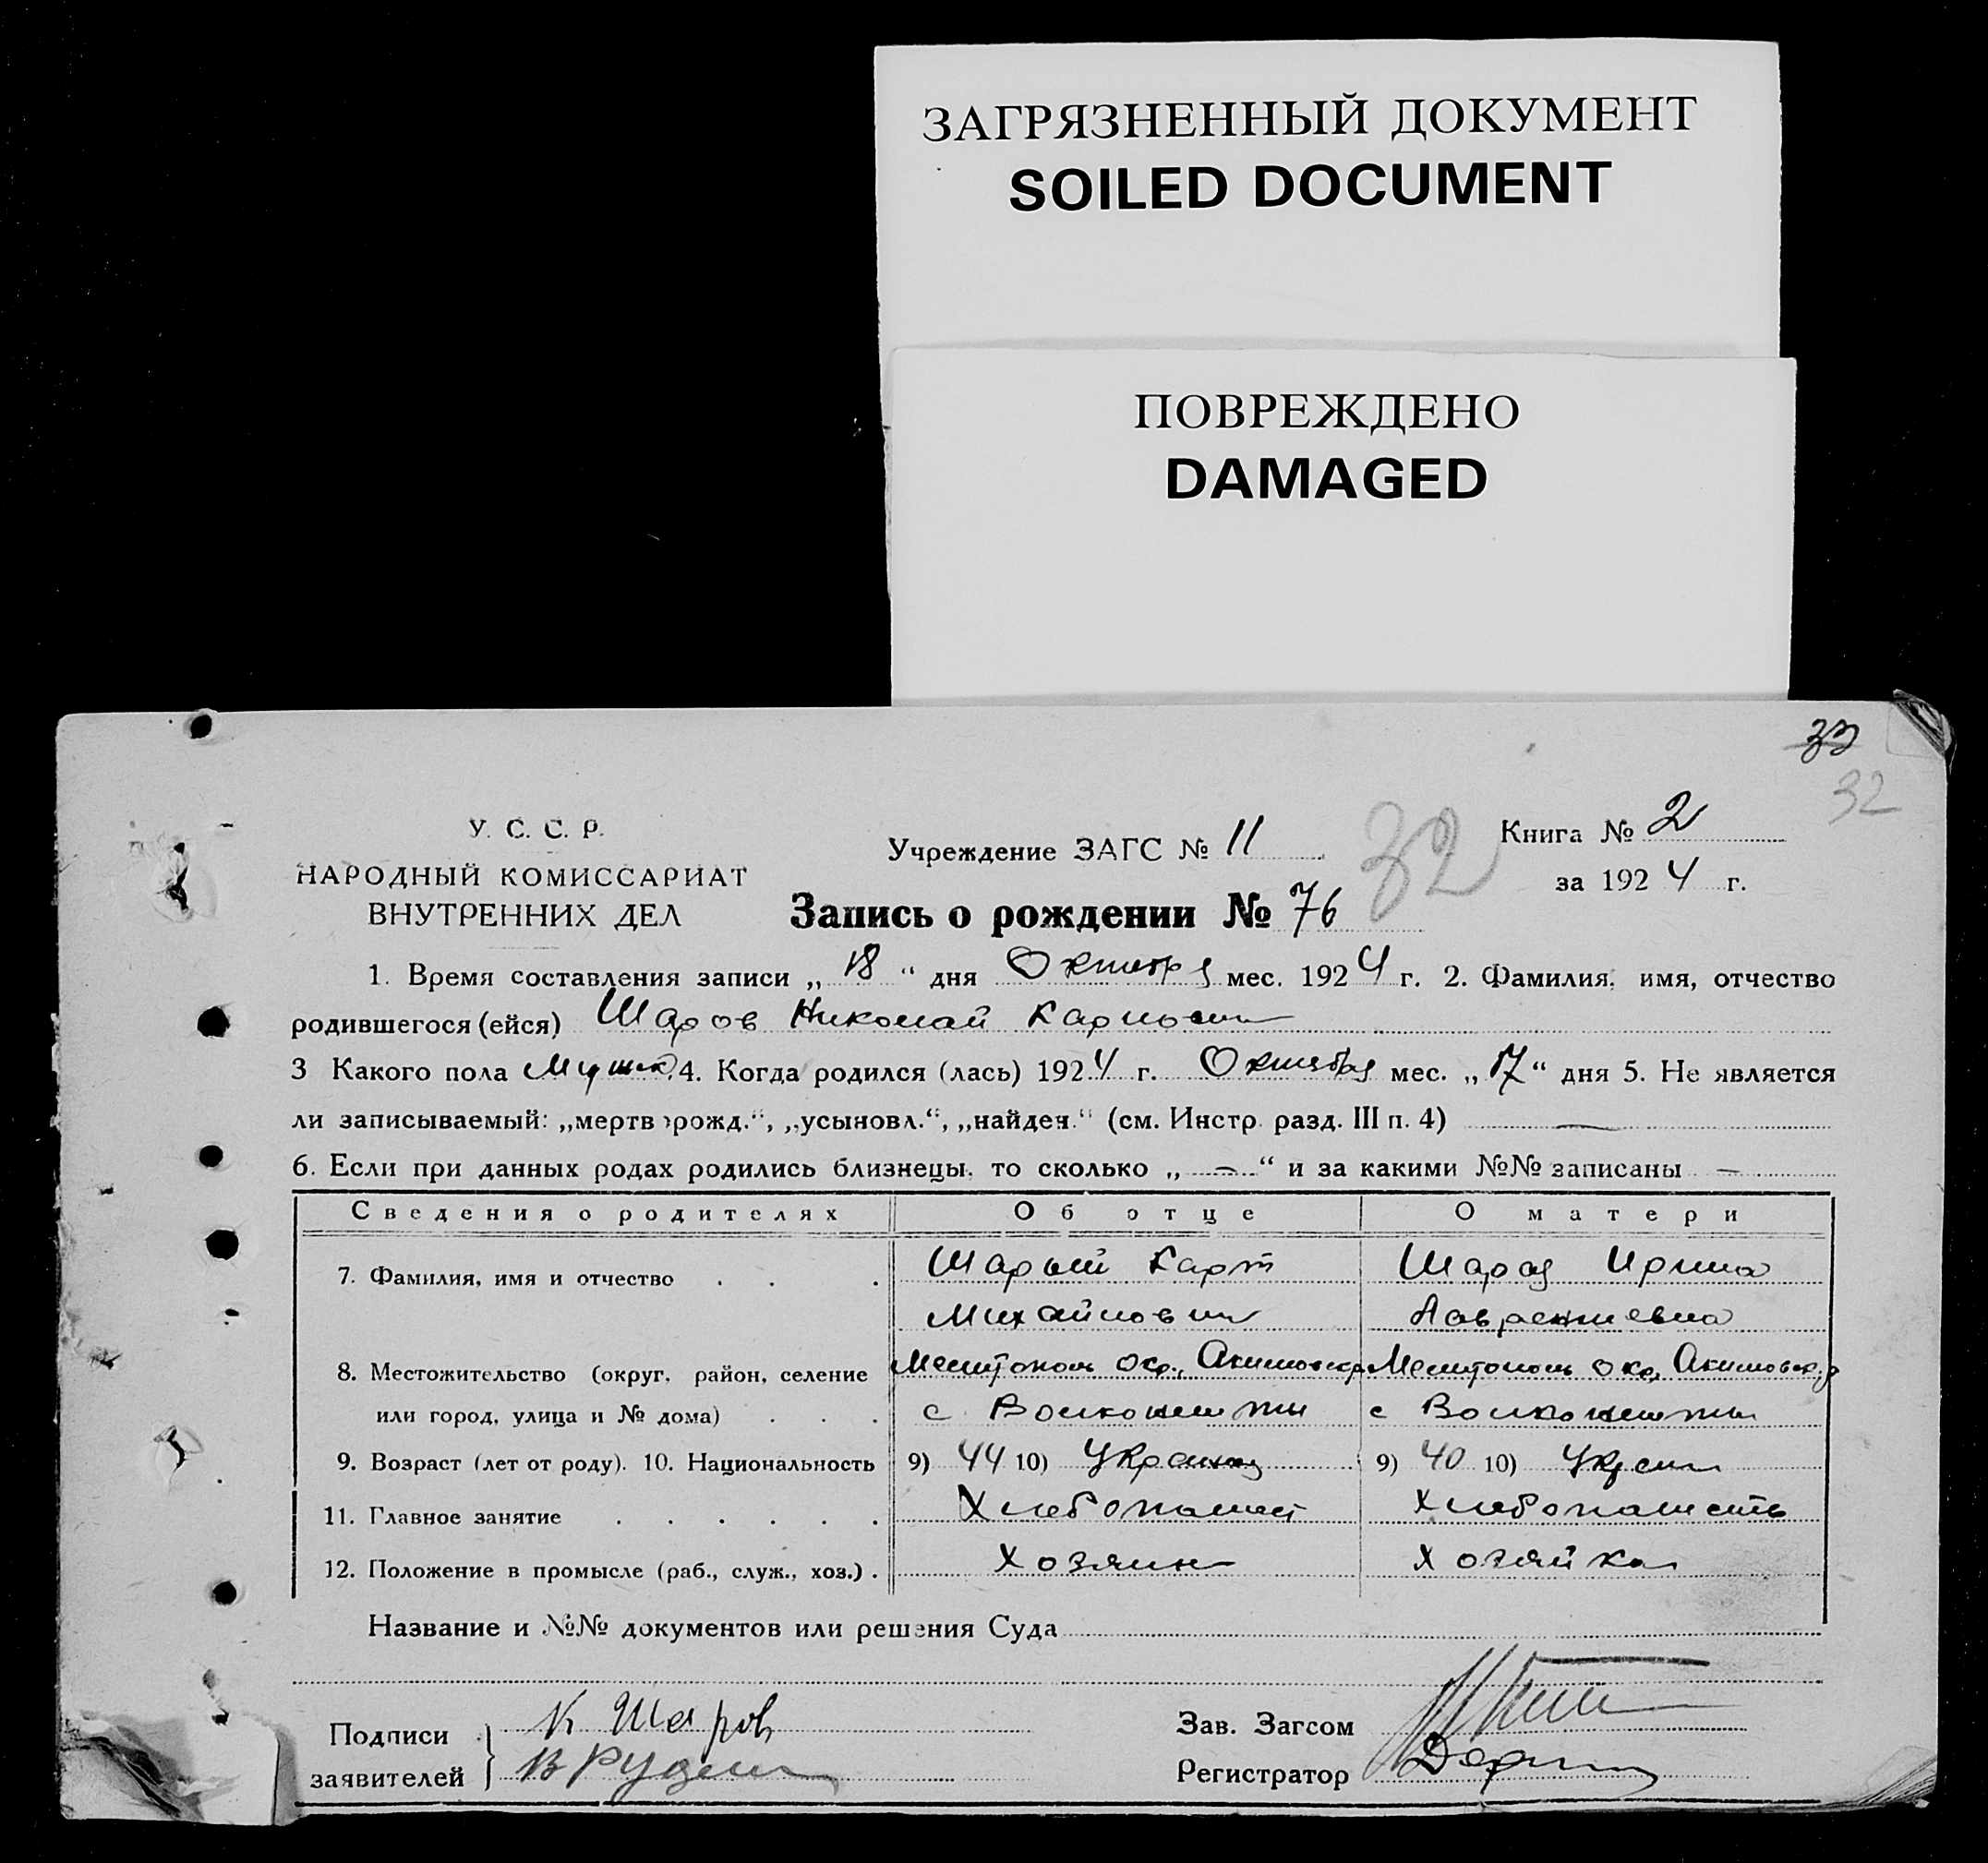 ЗАГРЯЗНЕННЫЙ ДОКУМЕНТ
SOILED DOCUMENT
ПОВРЕЖДЕНО
DAMAGED
33
32
У. С. С. Р.
НАРОДНЫЙ КОМИССАРИАТ
ВНУТРЕННИХ ДЕЛ
Учреждение ЗАГС № 11
32
Книга № 2
за 1924 г.
Запись о рождении № 76
1. Время составления записи „18“ дня Октября мес. 1924 г. 2. Фамилия, имя, отчество
родившегося (ейся) Шаров Николай Карпович
3 Какого пола Мужск. 4. Когда родился (лась) 1924 г. Октября мес. „17“ дня 5. Не является
ли записываемый: „мертворожд.“, „усыновл.“, „найден.“ (см. Инстр. разд. III п. 4) —
6. Если при данных родах родились близнецы, то сколько „—“ и за какими №№ записаны —
Сведения о родителях Об отце О матери
7. Фамилия, имя и отчество Шарый Карп Шарая Ирина
Михайлович Лаврентиевна
8. Местожительство (округ, район, селение Мелитополь окр., Акимовск. р Мелитополь окр, Акимовск. р
или город, улица и № дома) с с
9. Возраст (лет от роду). 10. Национальность 9) 44 10) Украинец 9) 40 10) Украин
11. Главное занятие Хлебопашест Хлебопашество
12. Положение в промысле (раб., служ., хоз.) Хозяин Хозяйка
Название и №№ документов или решения Суда
Подписи К Шаров
заявителей
Зав. Загсом
Регистратор